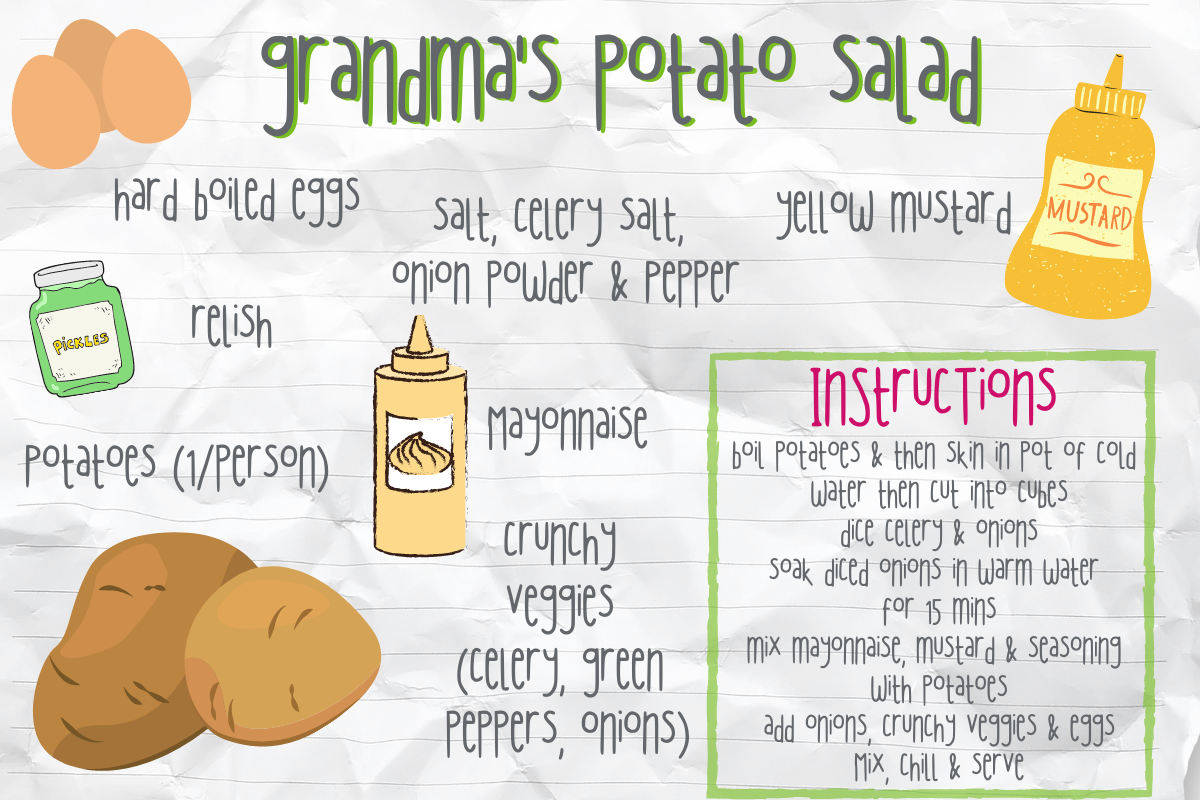 grandma's potato salad
hard boiled eggs
salt, celery salt,
onion powder & pepper
yellow mustard
MUSTARD
PiCKLES
relish
mayonnaise
potatoes (1/person)
crunchy
veggies
(celery, green
peppers, onions)
Instructions
boil potatoes & then skin in pot of cold
water then cut into cubes
dice celery & onions
soak diced onions in warm water
for 15 mins
mix mayonnaise, mustard & seasoning
with potatoes
add onions, crunchy veggies & eggs
Mix, chill & serve